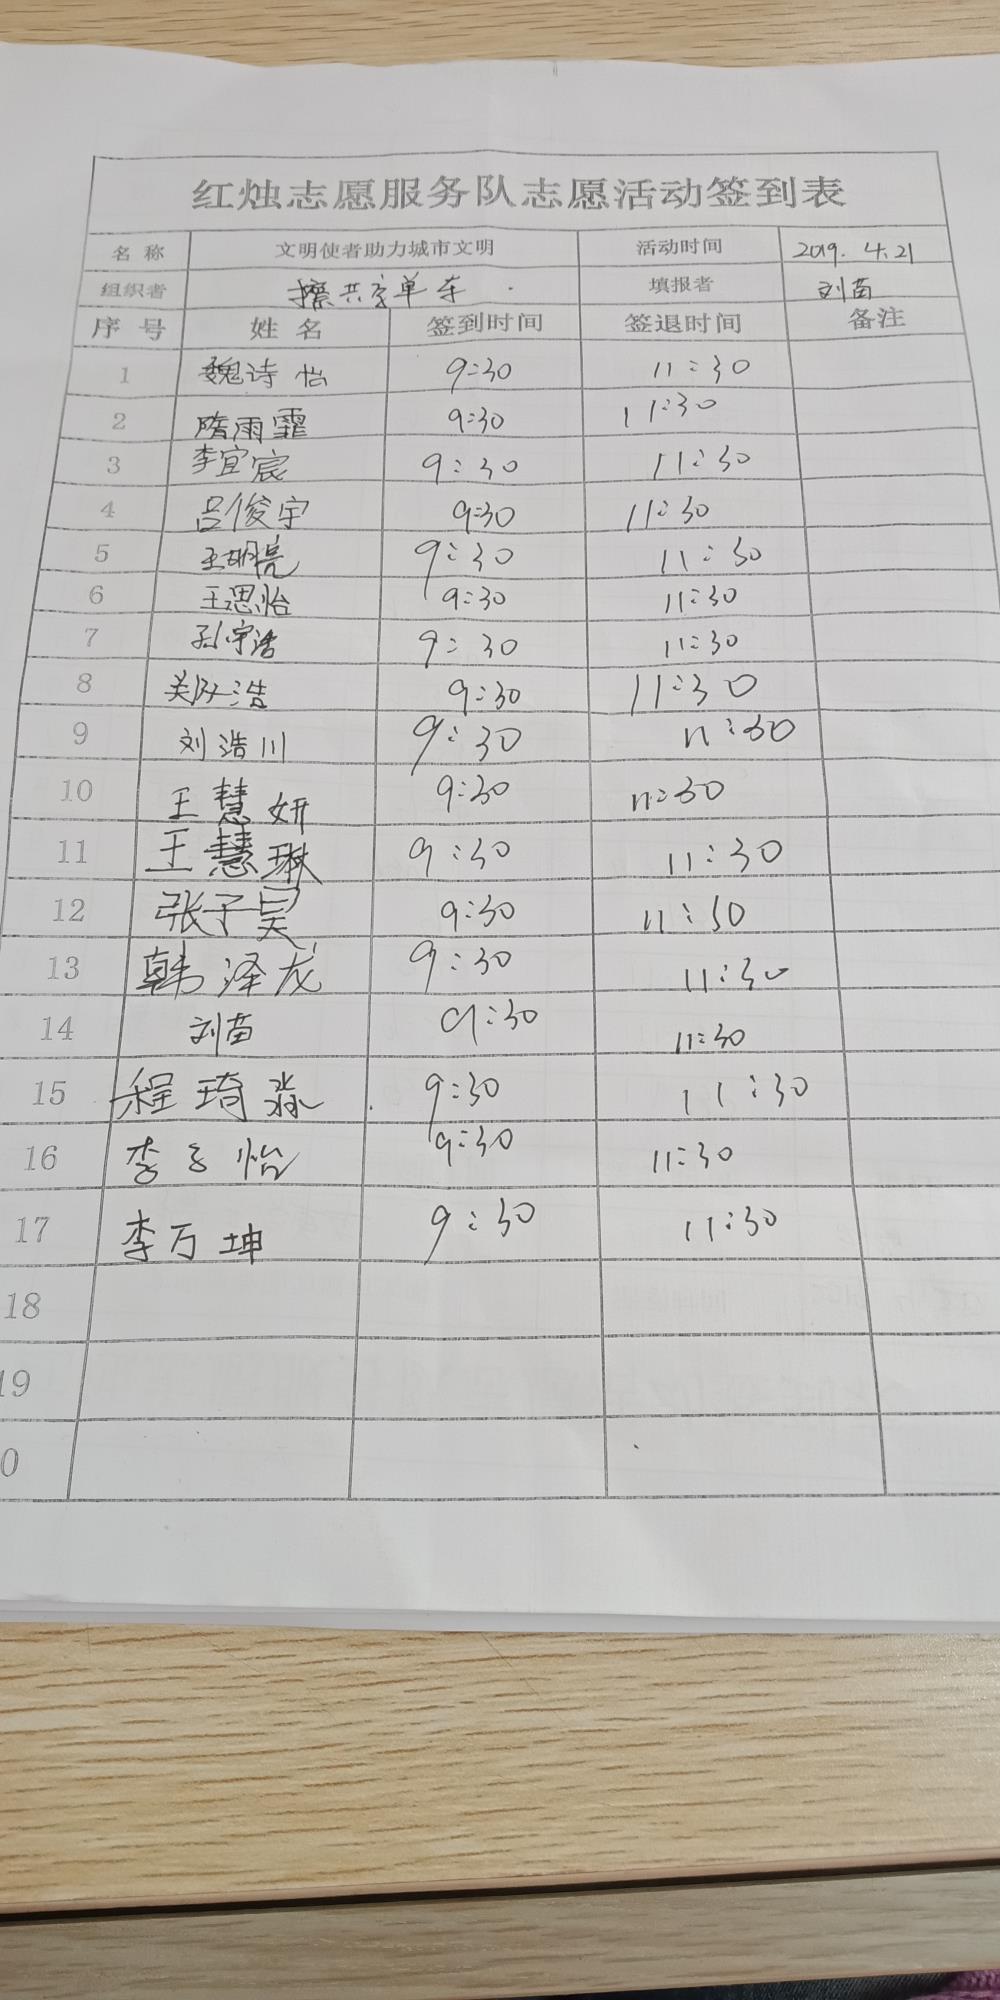 红烛志愿服务队志愿活动签到表
名称 文明使者助力城市文明 活动时间 2019. 4.21
组织者 擦共享单车 填报者 刘苗
序号 姓名 签到时间 签退时间 备注
1 魏诗怡 9:30 11:30
2 隋雨霏 9:30 11:30
3 李宜宸 9:30 11:30
4 吕俊宇 9:30 11:30
5 王明亮 9:30 11:30
6 王思怡 9:30 11:30
7 孙宇浩 9:30 11:30
8 9:30 11:30
9 刘浩川 9:30 11:30
10 王慧妍 9:30 11:30
11 王慧琳 9:30 11:30
12 张子昊 9:30 11:30
13 韩泽龙 9:30 11:30
14 刘苗 9:30 11:30
15 程琦淼 9:30 11:30
16 李子怡 9:30 11:30
17 李万坤 9:30 11:30
18
19
0